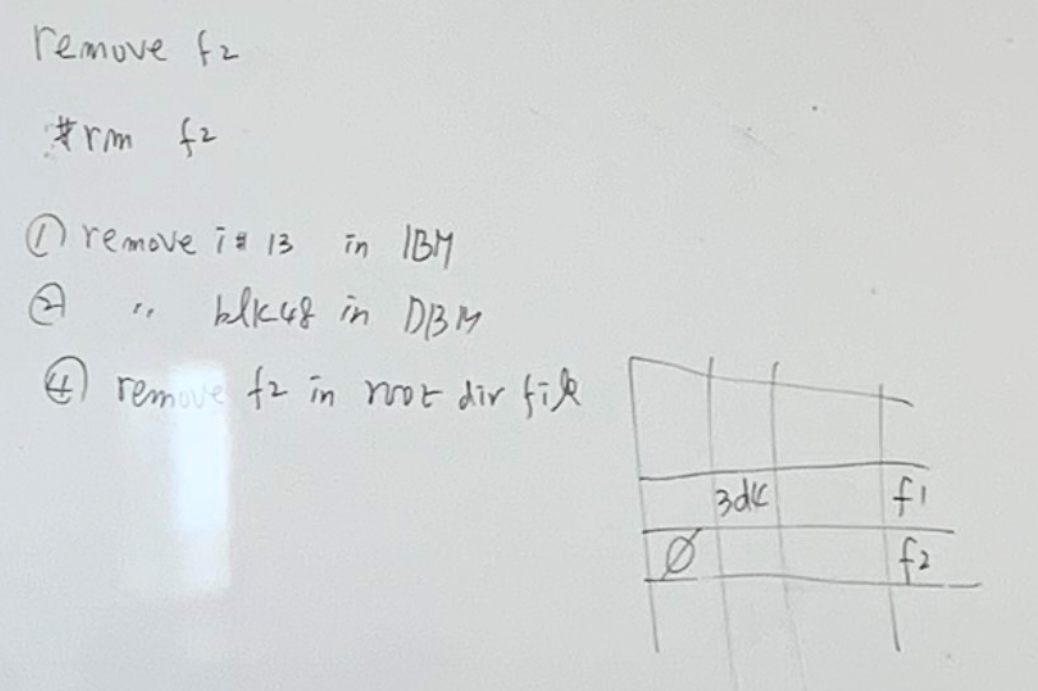 remove f2
#rm f2
① remove i# 13 in IBM
② 〃 blk48 in DBM
④ remove f2 in root dir file
3d4 f1
Ø f2